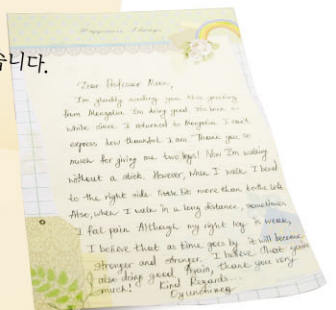 습니다.
Happiness Things
Dear Professor Moon,
I'm gladly sending you this greeting
from Mongolia. I'm doing good. It's been a
while since I returned to Mongolia. I can't
express how thankful I am. Thank you so
much for giving me two legs! Now I'm walking
without a stick. However, when I walk I bend
to the right side little bit more than to the left.
Also, when I walk in a long distance, sometimes
I feel pain. Although my right leg is weak,
I believe that as time goes by it will become
stronger and stronger. I believe that you're
also doing good. Again, thank you very
much! Kind Regards...